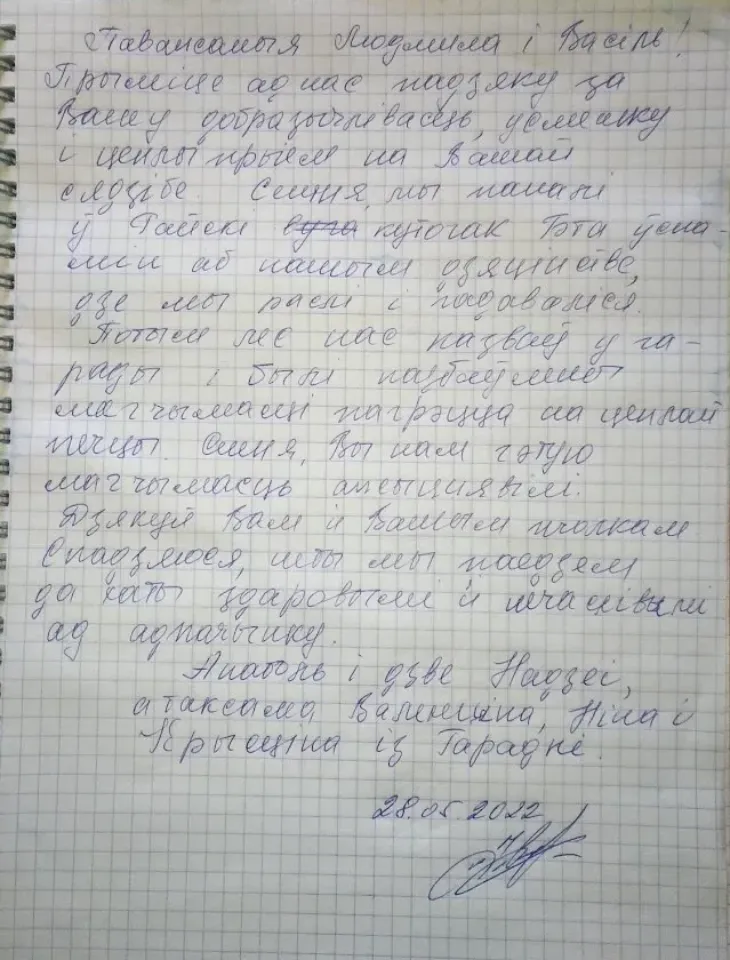 Паважаныя Людміла і Васіль!
Прыміце ад нас падзяку за
Вашу добразычлівасць, усмешку
і цеплы прыём на Вашай
сядзібе. Сення, мы папалі
ў Райскі куточак Гэта ўспа-
мін аб нашым дзяцінстве,
дзе мы раслі і гадаваліся.
Потым лес нас пазваў у га-
рады і былі пазбаўлены
магчымасці пагрэцца на цеплай
печцы. Сення, Вы нам гэтую
магчымасць ажыццявілі.
Дзякуй Вам й Вашым пчолкам
Спадзяюся, што мы паедзем
да хаты здаровымі й шчаслівымі
ад адпачынку.
Анатоль і дзве Надзеі,
а таксама Валенціна, Ніна і
Крысціна із Гарадні.
28.05.2022